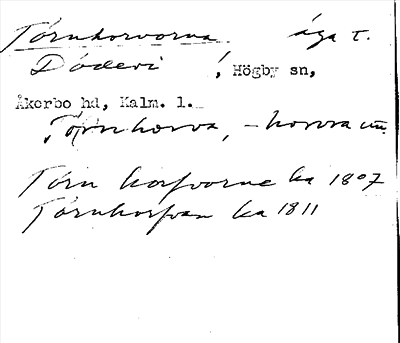 Törnhorvorna äga t.
Dödevi , Högby sn,
Åkerbo hd, Kalm. l.
Törnhorva, -horva un.
Törn horfvorne ka 1807
Törnhorfvan ka 1811